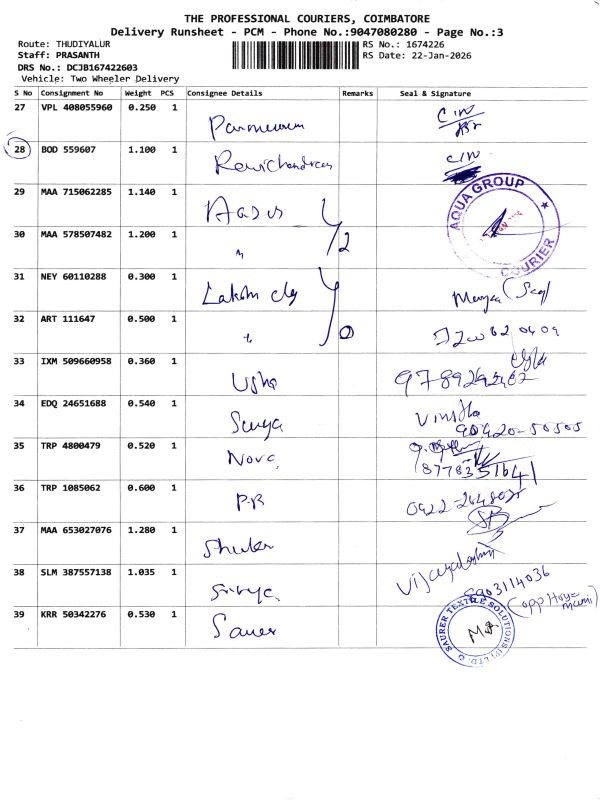 THE PROFESSIONAL COURIERS, COIMBATORE
Delivery Runsheet - PCM - Phone No.:9047080280 - Page No.:3
Route: THUDIYALUR
RS No.: 1674226
Staff: PRASANTH
RS Date: 22-Jan-2026
DRS No.: DCJB167422603
Vehicle: Two Wheeler Delivery
S No Consignment No Weight PCS Consignee Details Remarks Seal & Signature
27 VPL 408055960 0.250 1
28 BOD 559607 1.100 1 Ravichandran
29 MAA 715062285 1.140 1
AQUA GROUP
COURIER
30 MAA 578507482 1.200 1 "
31 NEY 60110288 0.300 1
32 ART 111647 0.500 1 "
33 IXM 509660958 0.360 1 Usha
34 EDQ 24651688 0.540 1 Surya
90420-50505
35 TRP 4800479 0.520 1 Nova
8778351641
36 TRP 1085062 0.600 1 P.R
37 MAA 653027076 1.280 1
Vijayalakshmi
38 SLM 387557138 1.035 1
8903114036
39 KRR 50342276 0.530 1 Saurer
SAURER TEXTILE SOLUTIONS (P) LTD.